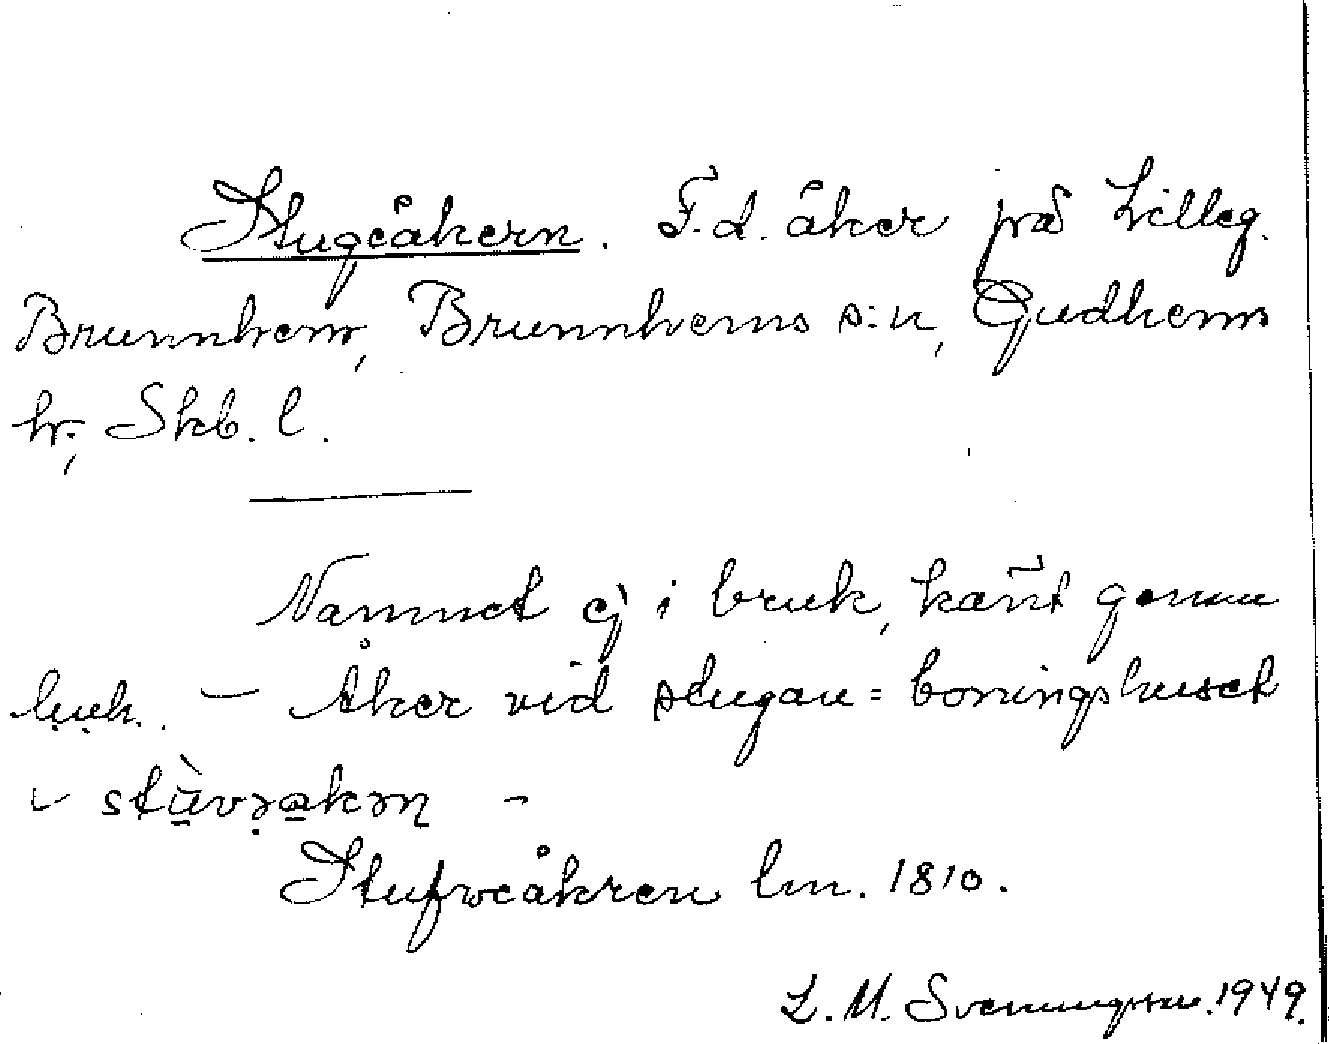 Stugeåkern. F.d. åker på Lilleg.
Brunnhem, Brunnhems s:n, Gudhems
hr, Skb. l.
Namnet ej i bruk, känt genom
— Åker vid stugan = boningshuset
Stufveåkren lm. 1810.
L. M. Svenungsson. 1949.